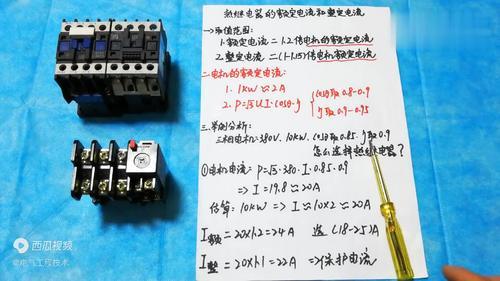 热继电器的额定电流和整定电流
一、取值范围:
1. 额定电流=1.2倍电机的额定电流
2. 整定电流=(1-1.15)倍电机额定电流
二、电机的额定电流:
1. 1KW≈2A
2. P=√3UI·cosθ·η { cosθ取0.8-0.9
η取0.9-0.95
三、举例分析:
三相电机:380V. 10KW. cosθ取0.85. η取0.9
怎么选择热继电器?
①电机电流: P=√3·380·I·0.85·0.9
=> I=19.8≈20A
估算: 10KW => I≈10×2≈20A
I额=20×1.2=24A 选(18-25)A
I整=20×1.1=22A =>保护电流
西瓜视频
@电气工程技术